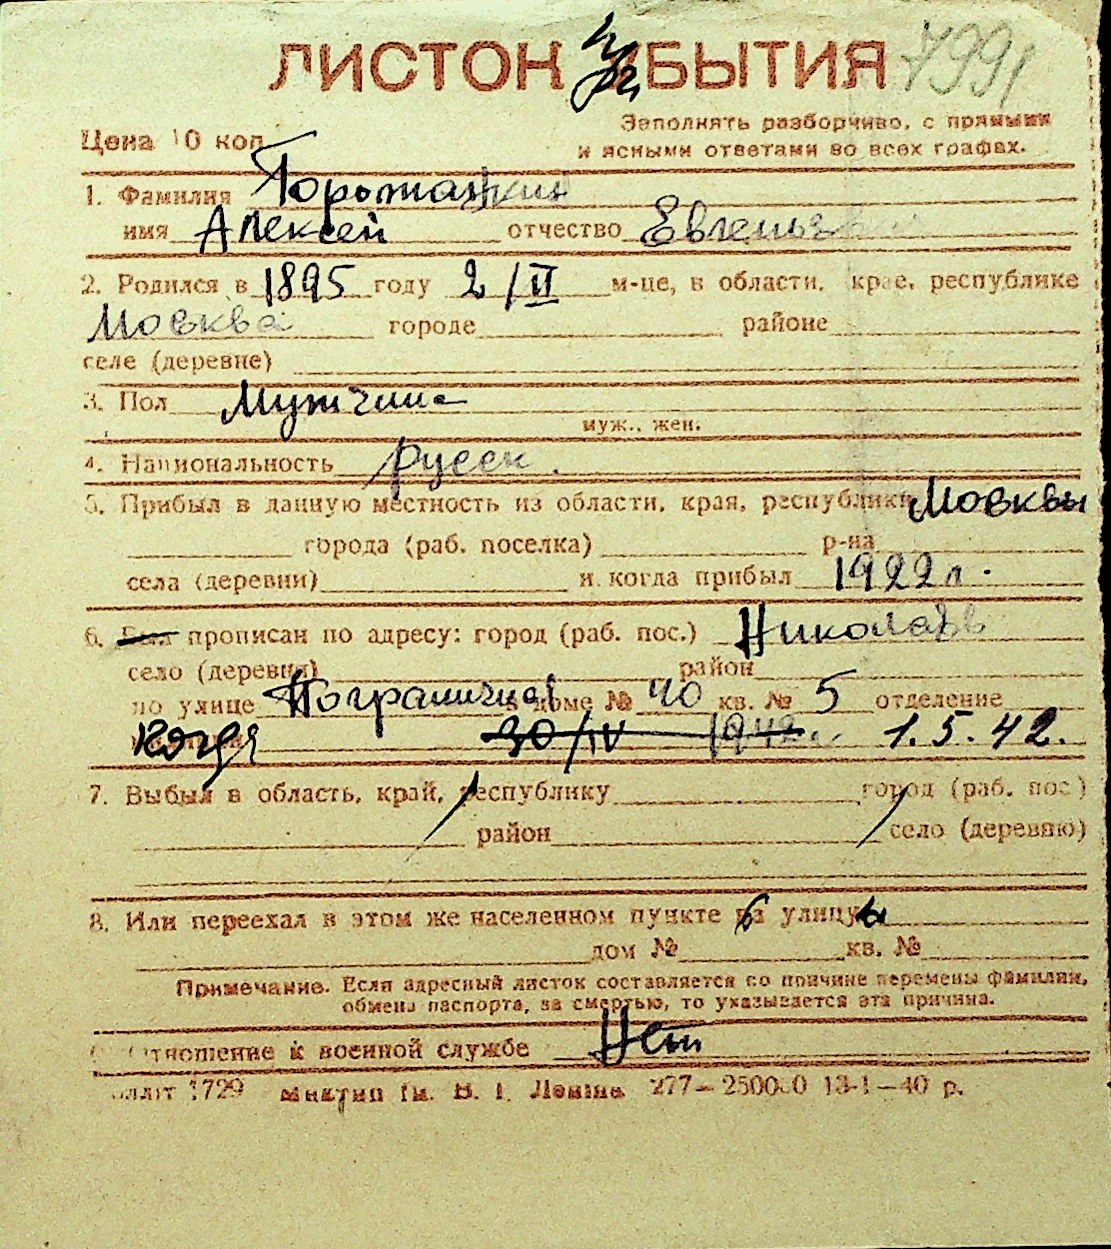 ЛИСТОК при БЫТИЯ 7991
Цена 10 коп. Заполнять разборчиво, с прямыми
и ясными ответами во всех графах.
1. Фамилия
имя Алексей отчество Евгеньевич
2. Родился в 1895 году 2/II м-це, в области, крае, республике
Москва городе районе
селе (деревне)
3. Пол Мужчина
муж., жен.
4. Национальность русск.
5. Прибыл в данную местность из области, края, республики Москвы
города (раб. поселка) р-на
села (деревни) и когда прибыл 1922 г.
6. Был прописан по адресу: город (раб. пос.) Николаев
село (деревня) район
по улице Пограничной в доме № 40 кв. № 5 отделение
когда 30/IV 1942 г. 1.5.42.
7. Выбыл в область, край, республику город (раб. пос.)
район село (деревню)
8. Или переехал в этом же населенном пункте улицы
дом № кв. №
Примечание. Если адресный листок составляется по причине перемены фамилии,
обмена паспорта, за смертью, то указывается эта причина.
Отношение к военной службе Нет
1729 Миктип Ім. В. І. Леніна 277—250000 13-1—40 р.